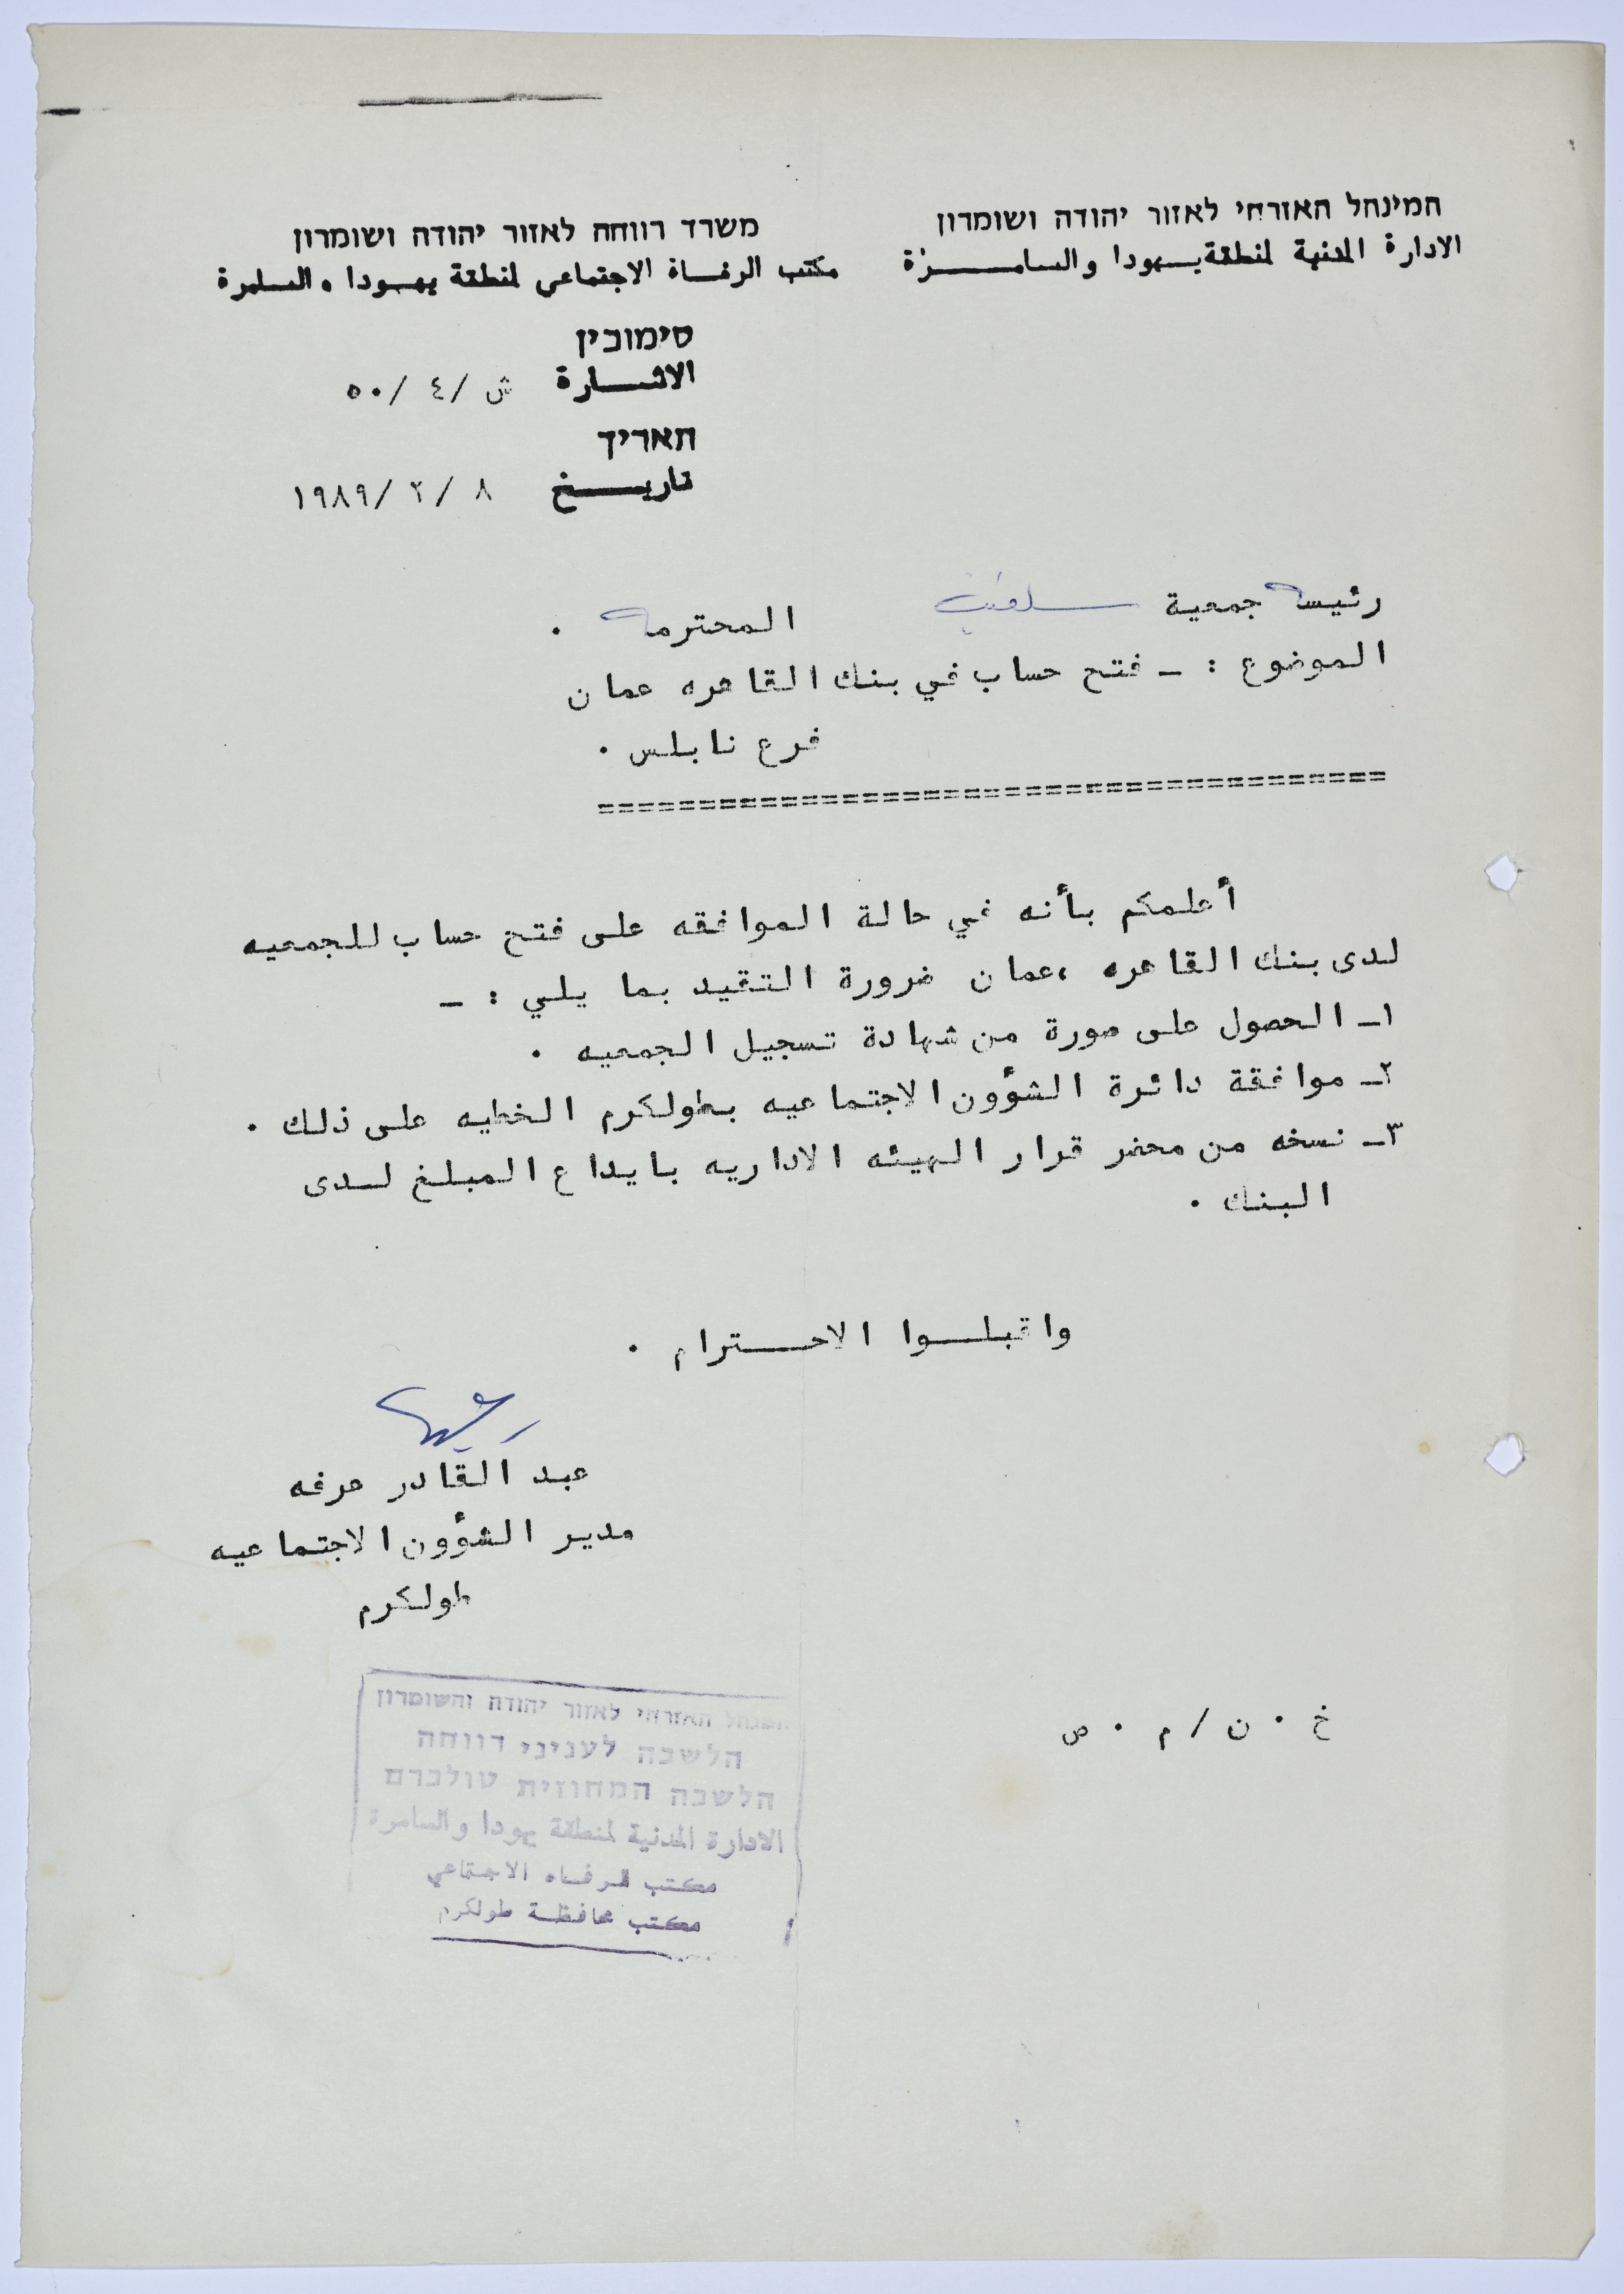 המינהל האזרחי לאזור יהודה ושומרון
الادارة المدنية لمنطقة يهودا والسامرة
משרד רווחה לאזור יהודה ושומרון
مكتب الرفاة الاجتماعي لمنطقة يهودا والسامرة
סימוכין
الاشارة ش /٤ /٥٠
תאריך
تاريخ ٨ /٢ /١٩٨٩
رئيسة جمعية سلفيت المحترمه .
الموضوع : ـ فتح حساب في بنك القاهره عمان
فرع نابلس .
=======================================
أعلمكم بأنه في حالة الموافقه على فتح حساب للجمعيه
لدى بنك القاهره ،عمان ضرورة التقيد بما يلي : ـ
١ـ الحصول على صورة من شهادة تسجيل الجمعيه .
٢ـ موافقة دائرة الشؤون الاجتماعيه بطولكرم الخطيه على ذلك .
٣ـ نسخه من محضر قرار الهيئه الاداريه بايداع المبلغ لدى
البنك .
واقبلوا الاحترام .
عبد القادر عرفه
مدير الشؤون الاجتماعيه
طولكرم
خ . ن / م . ص
המנהל האזרחי לאזור יהודה והשומרון
הלשכה לעניני רווחה
הלשכה המחוזית טולכרם
الادارة المدنية لمنطقة يهودا والسامرة
مكتب الرفاه الاجتماعي
مكتب محافظة طولكرم